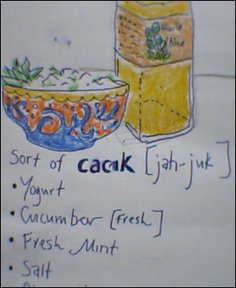 Sort of cacık [jah-juk]
• Yogurt
• Cucumber [fresh]
• Fresh Mint
• Salt